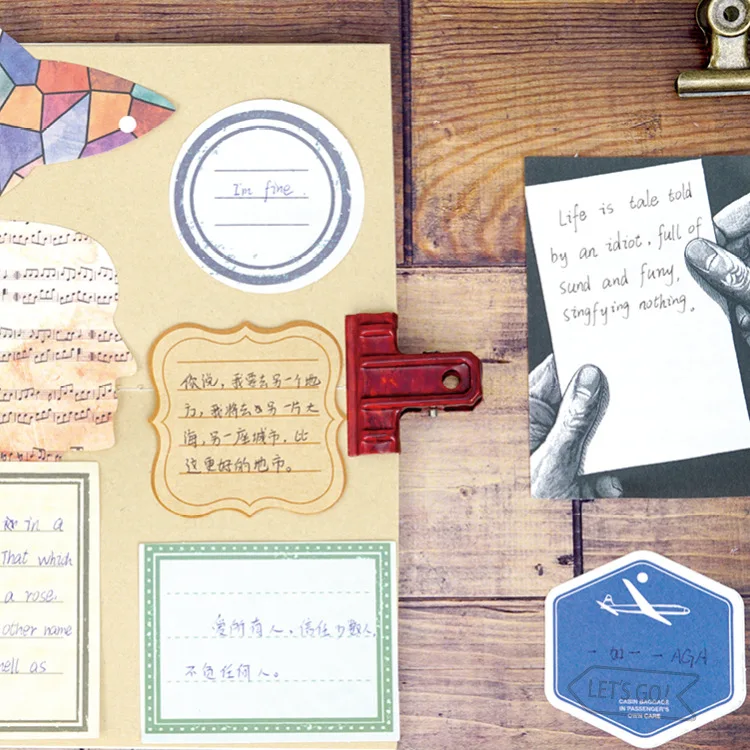 I'm fine.
Life is tale told
by an idiot, full of
sund and funy,
singfying nothing.
你说,我要去另一个地
方,我将去另一片大
海,另一座城市,比
这里好的地市。
in a
That which
a rose.
other name
mell as
爱所有人,信任少数人,
不负任何人。
AGA
LET'S GO!
CABIN BAGGAGE
IN PASSENGER'S
OWN CARE